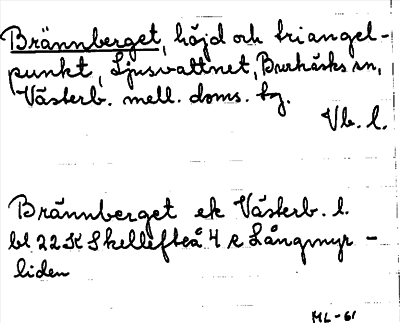 Brännberget, höjd och triangel-
punkt, Ljusvattnet, Burträsks sn,
Västerb. mell. doms. tg.
Vb. l.
Brännberget ek Västerb. l.
bl 22 K Skellefteå 4 e Långmyr-
liden
ML-61